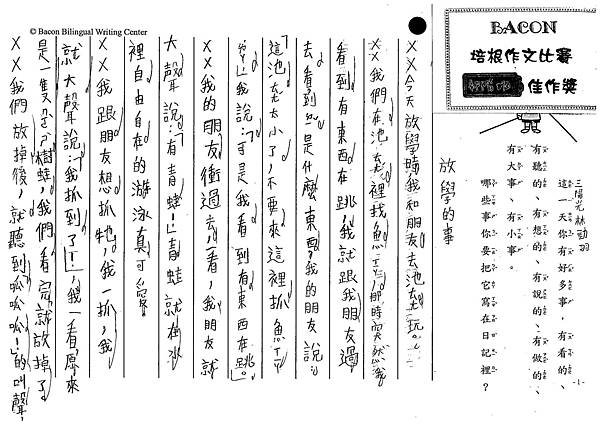 © Bacon Bilingual Writing Center
BACON
培根作文比賽
佳作獎
三陽光林勁羽
這一天你有好多事，有看的、
有聽的、有想的、有說的、有做的、
有大事、有小事。
哪些事你要把它寫在日記裡？
放學的事
××今天放學時我和朋友去池塘玩。
××我們在池塘裡找魚，那時突然我
看到有東西在跳，我就跟我朋友過
去看到底是什麼東西？我的朋友說：
這池塘太小了，不要來這裡抓魚
我說：可是我看到有東西在跳」
××我的朋友衝過去一看，我朋友就
大聲說：「有青蛙！」青蛙就在水
裡自由自在的游泳真可愛
××我跟朋友想抓牠，我一抓，我
就大聲說：「我抓到了！」，我一看，原來
是一隻樹蛙，我們看完就放掉了
××我們放掉後，就聽到呱呱呱！」的叫聲，